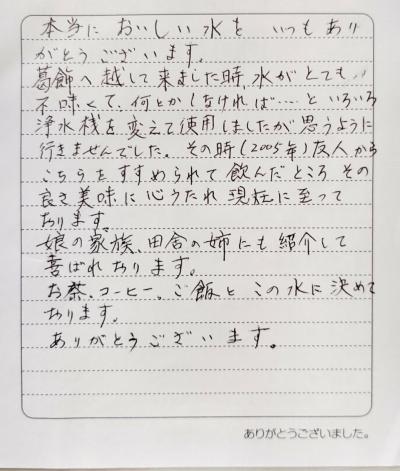 本当に おいしい水を いつもあり
がとうございます。
葛飾へ越して来ました時、水がとても
不味くて、何とかしなければ……と いろいろ
浄水栈を変えて使用しましたが思うように
行きませんでした。その時(2005年)友人から
こちらをすすめられて飲んだところ その
良さ美味に心うたれ 現在に至って
おります。
娘の家族、田舎の姉にも紹介して
喜ばれております。
お茶、コーヒー、ご飯と この水に決めて
おります。
ありがとうございます。
ありがとうございました。